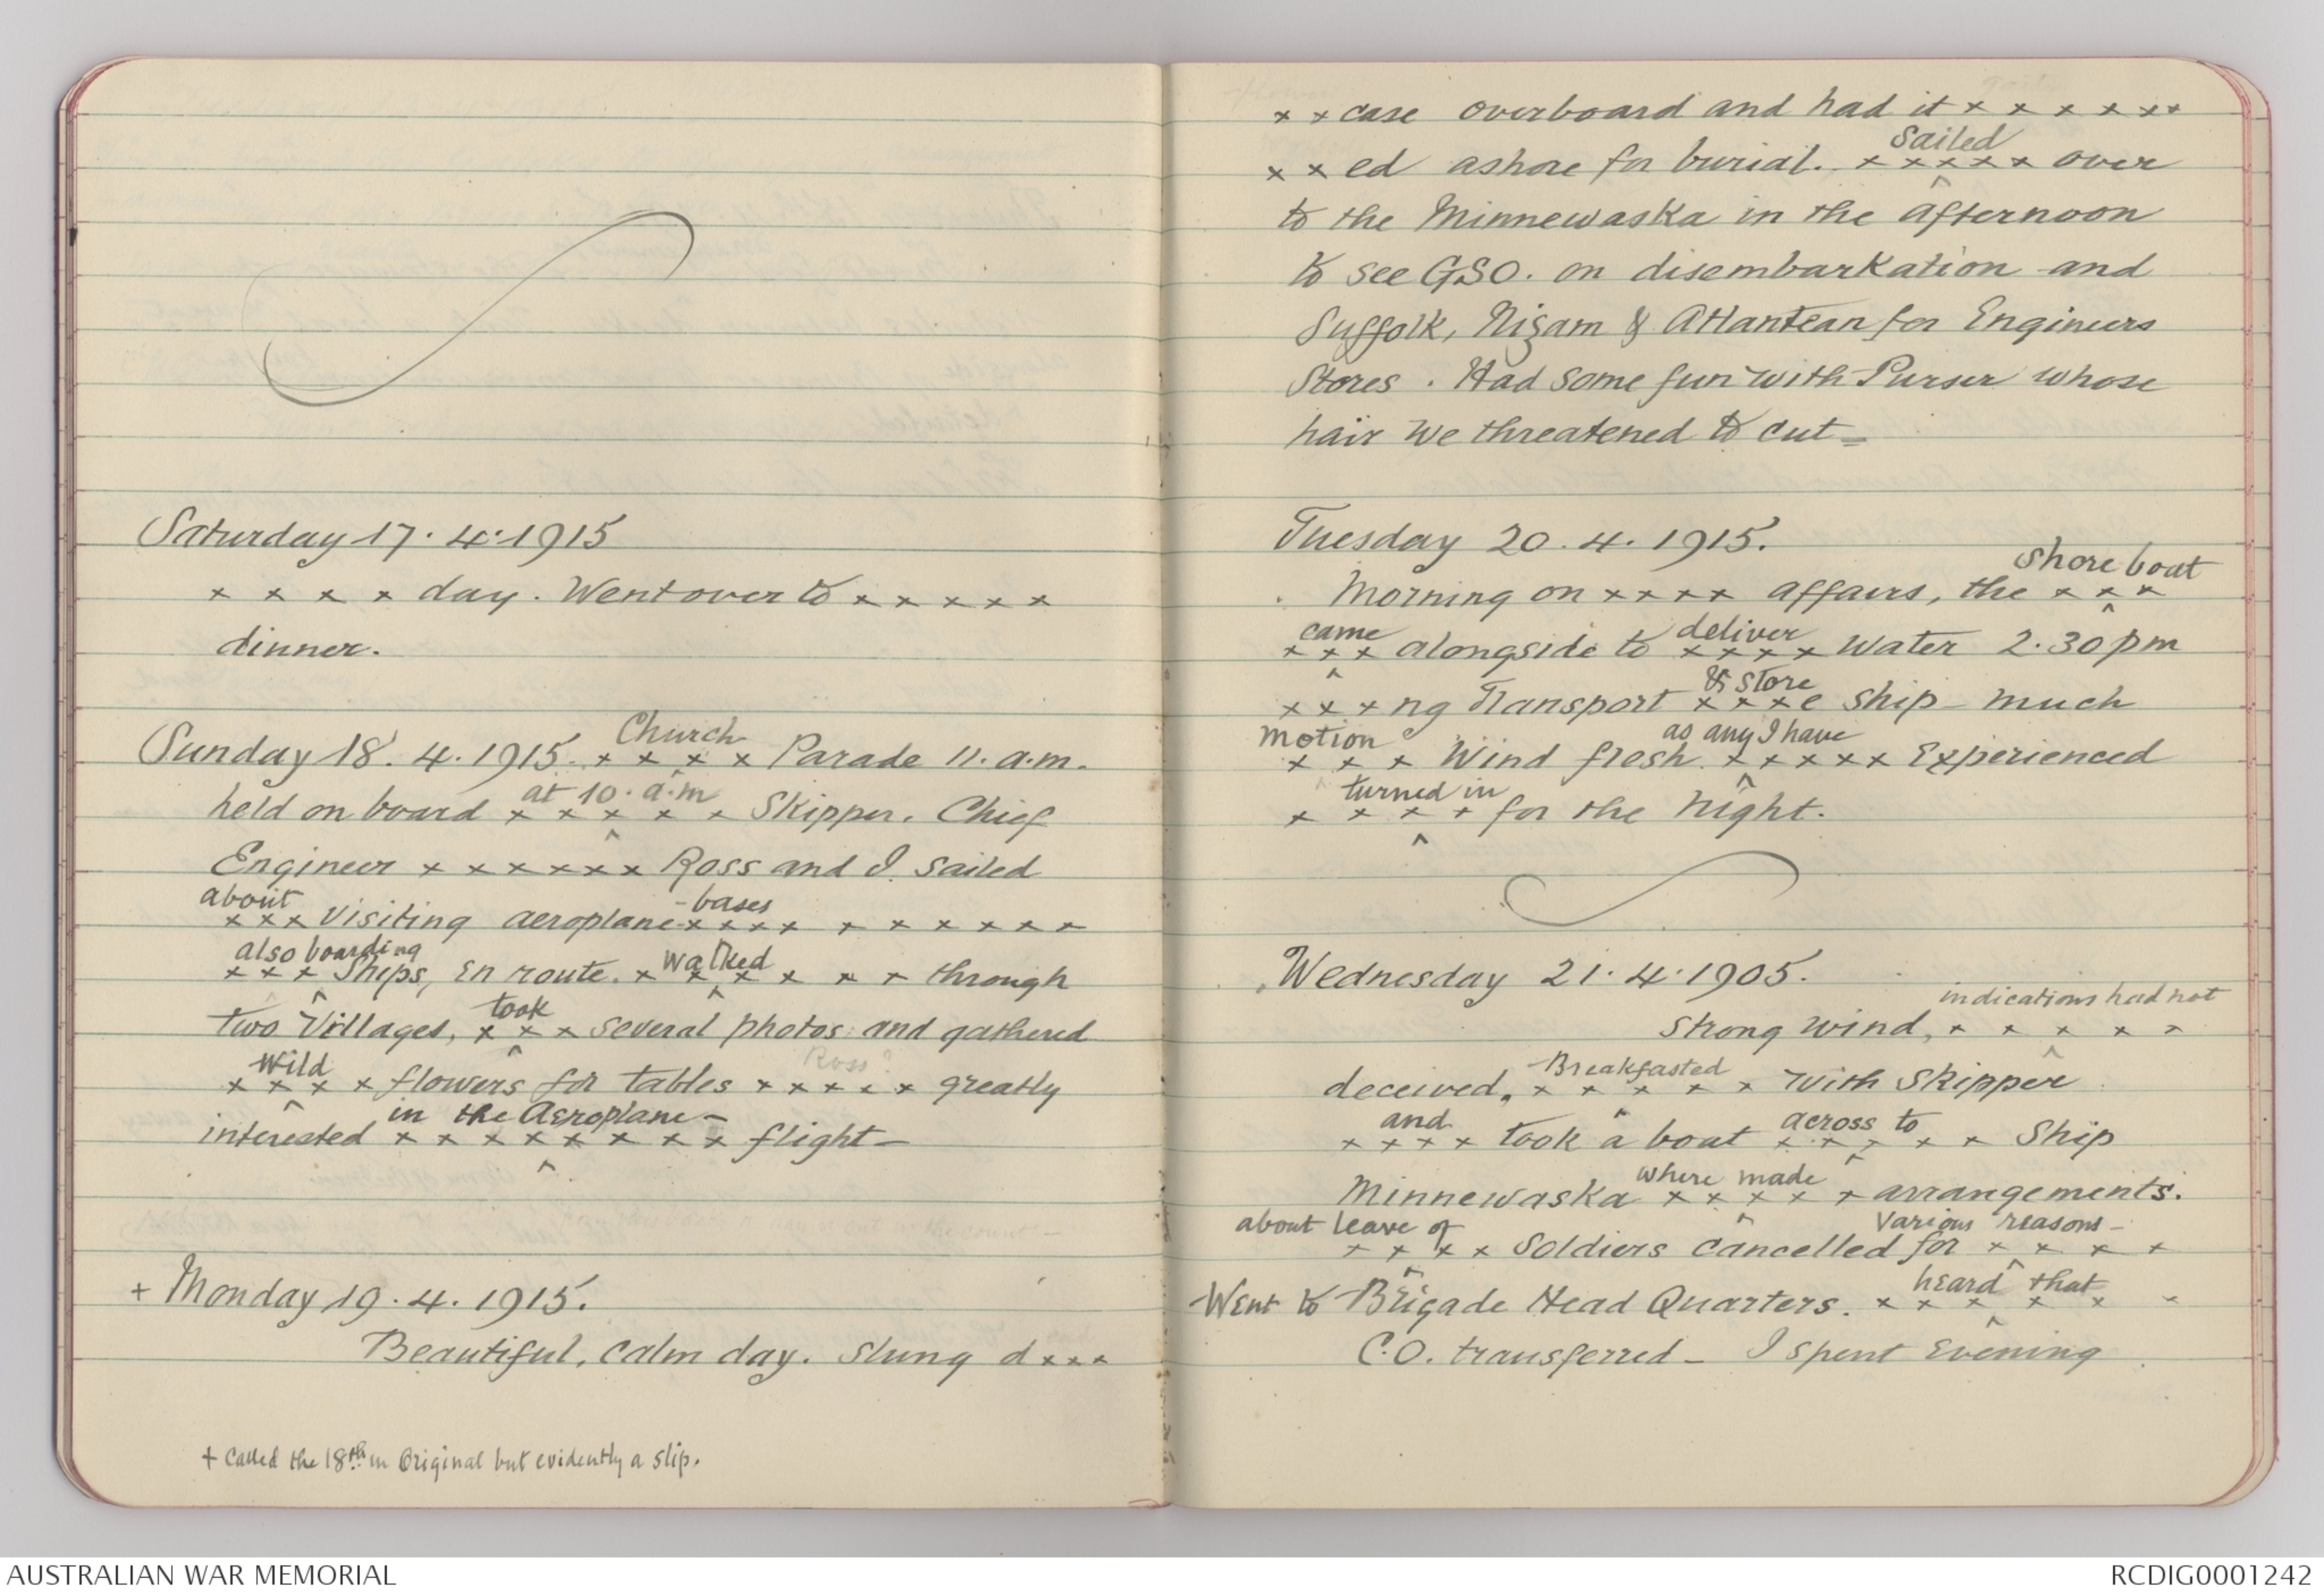 Saturday 17.4.1915
x x x x day. Went over to x x x x x
dinner.
Church
Sunday 18.4.1915. x x x x Parade 11.a.m.
at 10.a.m
held on board x x x x x Skipper. Chief
Engineer x x x x x x Ross and I sailed
about -bases
x x x visiting aeroplane x x x x x x x x x x
also boarding walked
x x x Ships, en route. x x x x x x through
took
two Villages, x x x several photos and gathered
Wild Ross?
x x x x flowers for tables x x x x x greatly
in the Aeroplane -
interested x x x x x x x x flight -
+ Monday 19.4.1915.
Beautiful, calm day. Slung d x x x
+ Called the 18th in Original but evidently a slip.
x x case overboard and had it x x x x x x x
Sailed
x x ed ashore for burial. x x x x x over
to the Minnewaska in the afternoon
to see GSO. on disembarkation and
Suffolk, Nizam & Atlantean for Engineers
Stores. Had some fun with Purser whose
hair we threatened to cut -
Tuesday 20.4.1915.
shore boat
Morning on x x x x affairs, the x x x
came deliver
x x x alongside to x x x x water 2.30pm
& store
x x x ng Transport x x x e ship - much
motion as any I have
x x x Wind fresh. x x x x x x Experienced
turned in
x x x x for the night.
Wednesday 21.4.1905.
indications had not
strong wind, x x x x x
Breakfasted
deceived, x x x x x with Skipper
and across to
x x x x took a boat x x x x x Ship
where made
Minnewaska x x x x x arrangements.
about leave of various reasons -
x x x x Soldiers cancelled for x x x x
heard that
Went to Brigade Head Quarters. x x x x x x
C.O. transferred - I spent Evening
AUSTRALIAN WAR MEMORIAL
RCDIG0001242